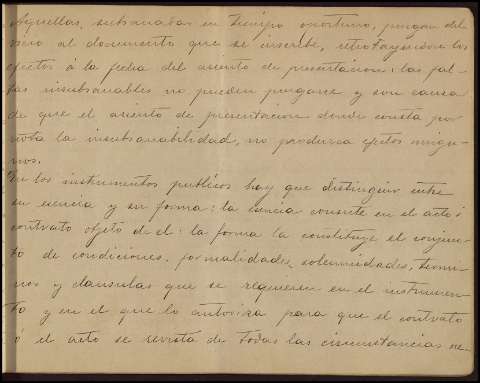 Aquellas, subsanadas en tiempo oportuno, purgan del
vicio al documento que se inscribe, retrotrayendose los
efectos á la fecha del asiento de presentacion: las fal-
tas insubsanables no pueden purgarse y son causa
de que el asiento de presentacion donde consta por
nota la insubsanabilidad, no produzca efectos ningu-
nos.
En los instrumentos publicos hay que distinguir entre
su esencia y su forma: la esencia consiste en el acto ó
contrato objeto de el: la forma la constituye el conjun-
to de condiciones, formalidades, solemnidades, térmi-
nos y clausulas que se requieren en el instrumen-
to y en el que lo autoriza para que el contrato
ó el acto se revista de todas las circunstancias ne-